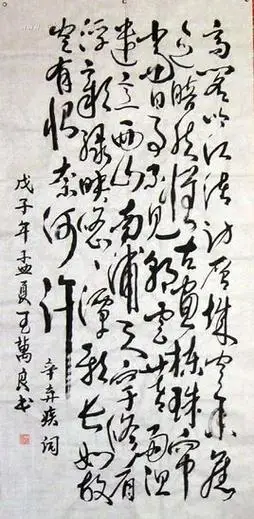 高阁临江渚访层城空余旧
迹黯然怀古画栋珠帘
当日事不见朝云暮雨但
遗意西山南浦天宇修眉
浮新绿映悠悠潭影长如故
空有恨奈何许
辛弃疾词
戊子年孟夏王萬良书